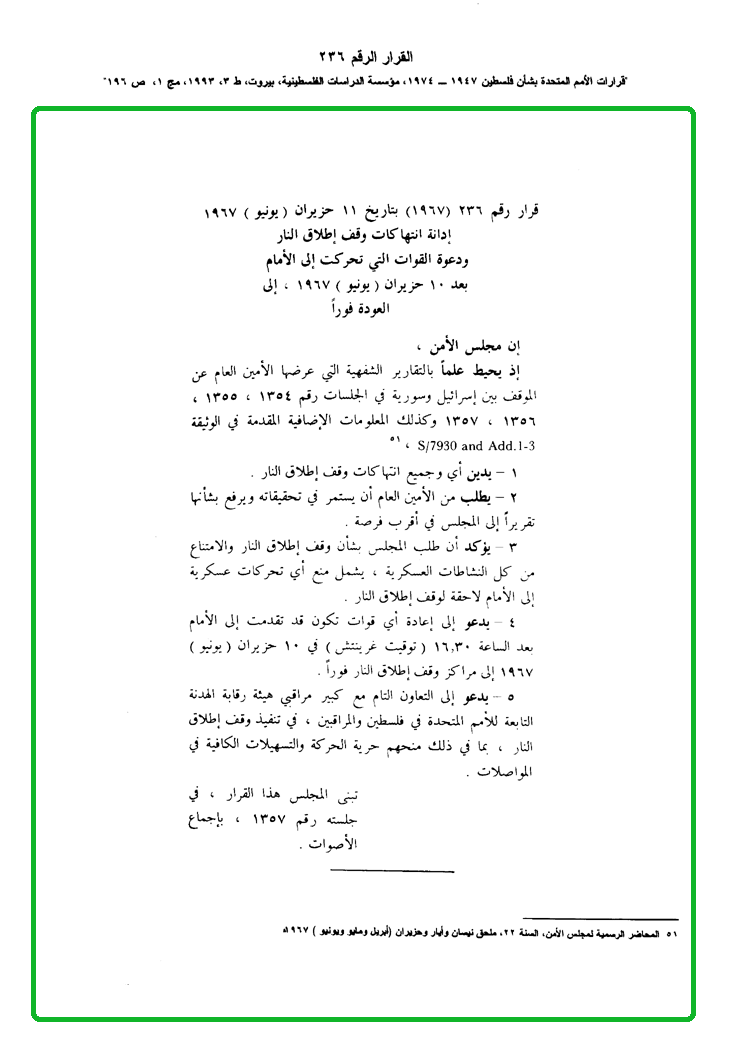 القرار الرقم ٢٣٦
"قرارات الأمم المتحدة بشأن فلسطين ١٩٤٧ – ١٩٧٤، مؤسسة الدراسات الفلسطينية، بيروت، ط ٣، ١٩٩٣، مج ١، ص ١٩٦"
قرار رقم ٢٣٦ (١٩٦٧) بتاريخ ١١ حزيران ( يونيو ) ١٩٦٧
إدانة انتهاكات وقف إطلاق النار
ودعوة القوات التي تحركت إلى الأمام
بعد ١٠ حزيران ( يونيو ) ١٩٦٧ ، إلى
العودة فوراً
إن مجلس الأمن ،
إذ يحيط علماً بالتقارير الشفهية التي عرضها الأمين العام عن
الموقف بين إسرائيل وسورية في الجلسات رقم ١٣٥٤ ، ١٣٥٥ ،
١٣٥٦ ، ١٣٥٧ وكذلك المعلومات الإضافية المقدمة في الوثيقة
S/7930 and Add.1-3 ، ٥١
١ – يدين أي وجميع انتهاكات وقف إطلاق النار .
٢ – يطلب من الأمين العام أن يستمر في تحقيقاته ويرفع بشأنها
تقريراً إلى المجلس في أقرب فرصة .
٣ – يؤكد أن طلب المجلس بشأن وقف إطلاق النار والامتناع
من كل النشاطات العسكرية ، يشمل منع أي تحركات عسكرية
إلى الأمام لاحقة لوقف إطلاق النار .
٤ – يدعو إلى إعادة أي قوات تكون قد تقدمت إلى الأمام
بعد الساعة ١٦,٣٠ ( توقيت غرينتش ) في ١٠ حزيران ( يونيو )
١٩٦٧ إلى مراكز وقف إطلاق النار فوراً .
٥ – يدعو إلى التعاون التام مع كبير مراقبي هيئة رقابة الهدنة
التابعة للأمم المتحدة في فلسطين والمراقبين ، في تنفيذ وقف إطلاق
النار ، بما في ذلك منحهم حرية الحركة والتسهيلات الكافية في
المواصلات .
تبنى المجلس هذا القرار ، في
جلسته رقم ١٣٥٧ ، بإجماع
الأصوات .
٥١ المحاضر الرسمية لمجلس الأمن، السنة ٢٢، ملحق نيسان وأيار وحزيران (أبريل ومايو ويونيو ) ١٩٦٧ه